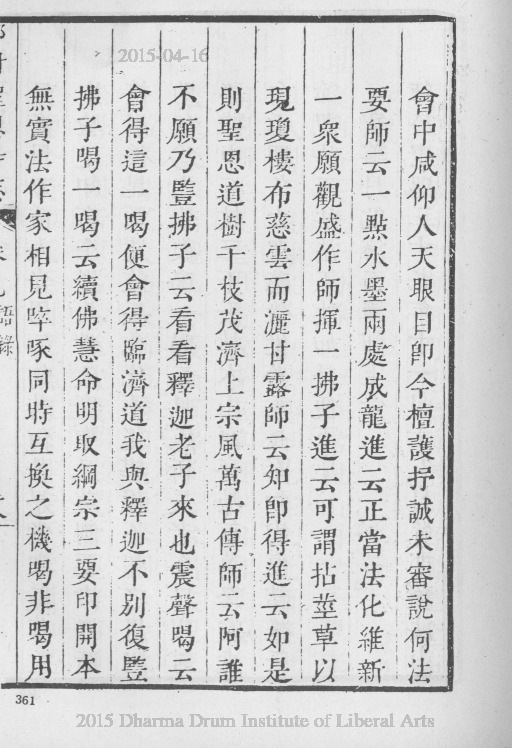 2015-04-16
會中咸仰人天眼目卽今檀護抒誠未審說何法
要師云一點水墨兩處成龍進云正當法化維新
一衆願觀盛作師揮一拂子進云可謂拈莖草以
現瓊樓布慈雲而灑甘露師云知卽得進云如是
則聖恩道樹千枝茂濟上宗風萬古傳師云阿誰
不願乃豎拂子云看看釋迦老子來也震聲喝云
會得這一喝便會得臨濟道我與釋迦不別復豎
拂子喝一喝云續佛慧命明取綱宗三要印開本
無實法作家相見啐啄同時互換之機喝非喝用
語錄
361
2015 Dharma Drum Institute of Liberal Arts